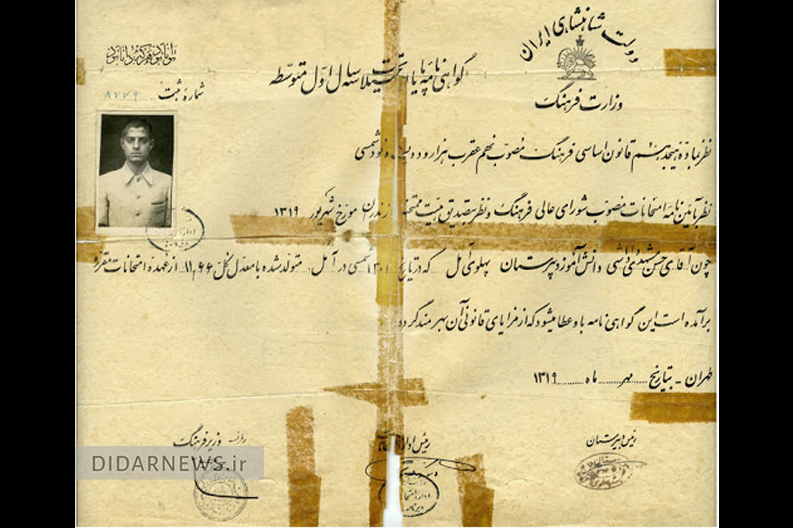 دولت شاهنشاهی ایران
وزارت فرهنگ
توانا بود هر که دانا بود
شماره ثبت ۸۷۷۹
گواهی نامه پایان تحصیلات سه سال اول متوسطه
نظر بماده هیجدهم قانون اساسی فرهنگ مصوب نهم عقرب هزار و دویست و نود شمسی
نظر بآئین نامه امتحانات مصوب شورای عالی فرهنگ و نظر بتصدیق هیئت ممتحنه مازندران مورخ شهریور ۱۳۱۹
چون آقای حسن دانش آموز دبیرستان پهلوی آمل که در تاریخ ۱۳۰۱ شمسی در آمل متولد شده با معدل کل ۱۱٫۶۶ از عهده امتحانات مقرره
برآمده است این گواهی نامه باو عطا میشود که از مزایای قانونی آن بهره مند گردد
طهران - بتاریخ مهر ماه ۱۳۱۹
رئیس دبیرستان
رئیس اداره
وزیر فرهنگ
DIDARNEWS.ir